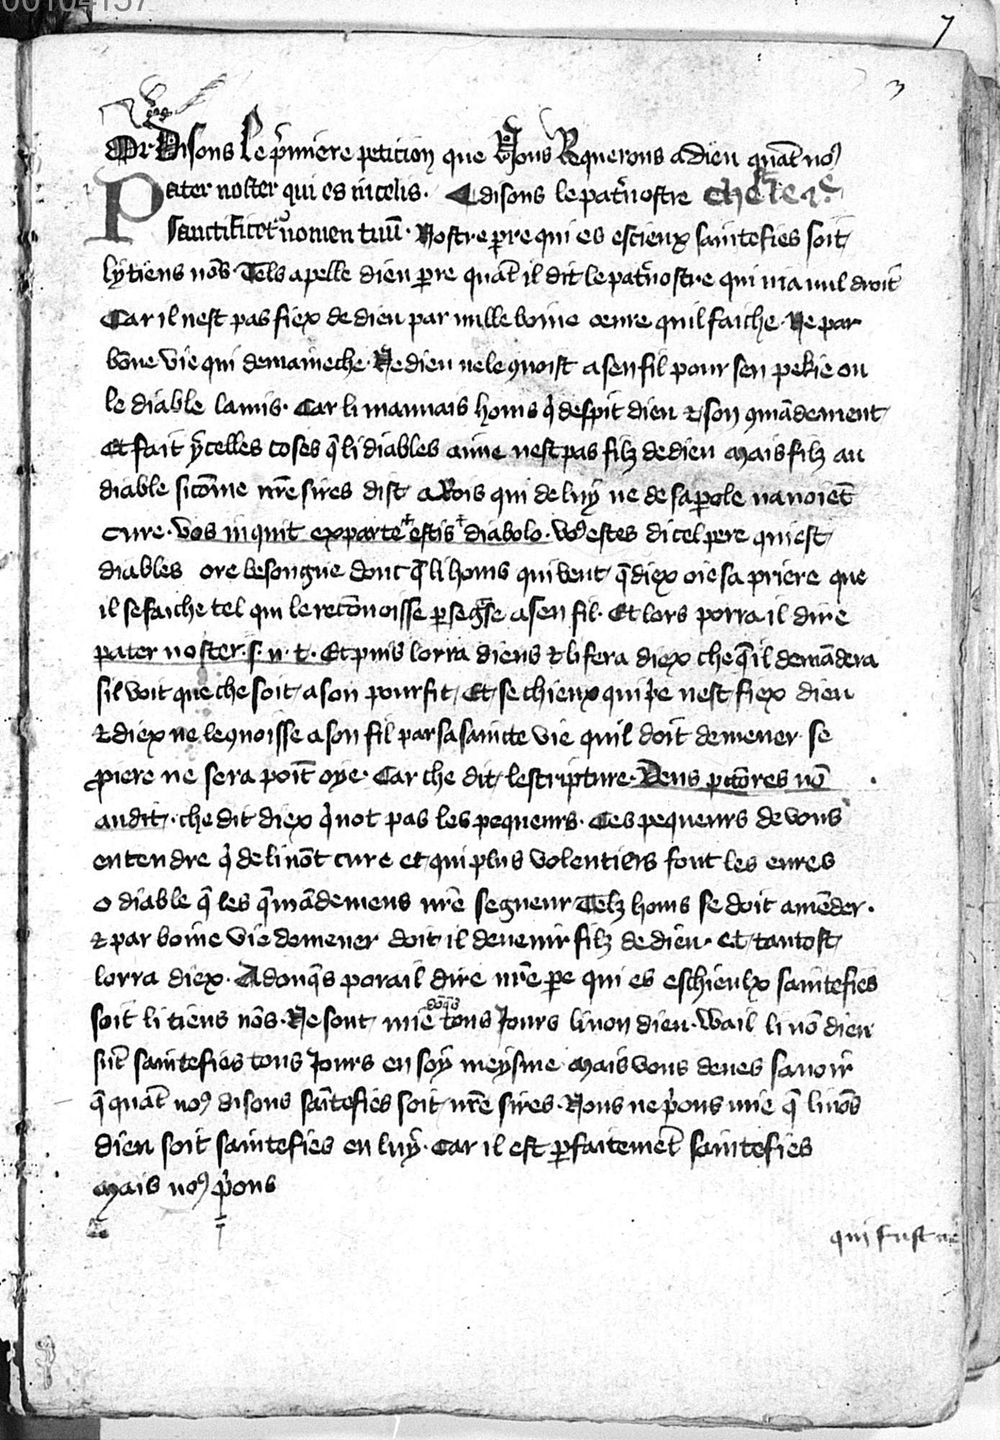 00104157
7
3
Or Disons Le p̃miere peticion que Nous Requerons a dieu quãt noꝰ
Pater noster qui es in celis. disons le pat̃nostre
Sanctificet᷑ nomen tuũ. Nostre pere qui es es cieux saintefies soit
ly tiens nõs. Tels apelle dieu pere quãt il dit le pat̃nostre qui ni a nul droit
Car il nest pas fiex de dieu par nulle boine oeure quil faiche. Ne par
bõne vie qui demaineche. Ne dieu ne le ꝯnoist a sen fil pour sen pekie ou
le diable lamis. Car li mauuais homs q̃ despit dieu ⁊ son ꝯmãdement
Et fait ycelles coses q̃ li diables aime nest pas filz de dieu Mais filz au
diable sicõme nr̃e sires dist a Rois qui de luy ne de sa parole nauoiẽt
cure. Vos inquit ex parte estis diabolo. Vꝰ estes dicel pere qui est
diables ore besongne donc q̃ li homs qui veut q̃ diex oie sa priere que
il se faiche tel qui le recõnoisse a sen fil. Et lors porra il dire
pater noster. s. n. t. Et puis lorra diens ⁊ li fera diex che q̃ il demãdera
sil voit que che soit a son pourfit. Et se chieux qui pe nest fiex dieu
⁊ diex ne le ꝯnoisse a son fil par sa saincte vie quil doit demener se
priere ne sera poĩt oye. Car che dit lescripture. Deus pctõres nõ
audit. che dit diex q̃ not pas les pequeurs. Ces pequeurs deuons
entendre q̃ de li nõt cure et qui plus volentiers font les eures
o diable q̃ les q̃mãdemens nr̃e segneur Telz homs se doit amẽder.
⁊ par boine vie demener doit il deuenir filz de dieu. Et tantost
lorra diex. Adonq̃s pora il dire nr̃e pe qui es es chieulx saintefies
soit li tiens nõs. Ne sont mie tous Jours li non dieu. Wail li nõ dieu
sũt saintefies tous Jours en soy meysme Mais vous deues sauoir
q̃ quãt noꝰ disons saĩtefies soit nr̃e sires. Nous ne p̃ons mie q̃ li nõs
dieu soit saintefies en luy. Car il est parfaitemẽt saintefies
Mais noꝰ p̃ons
qui fust